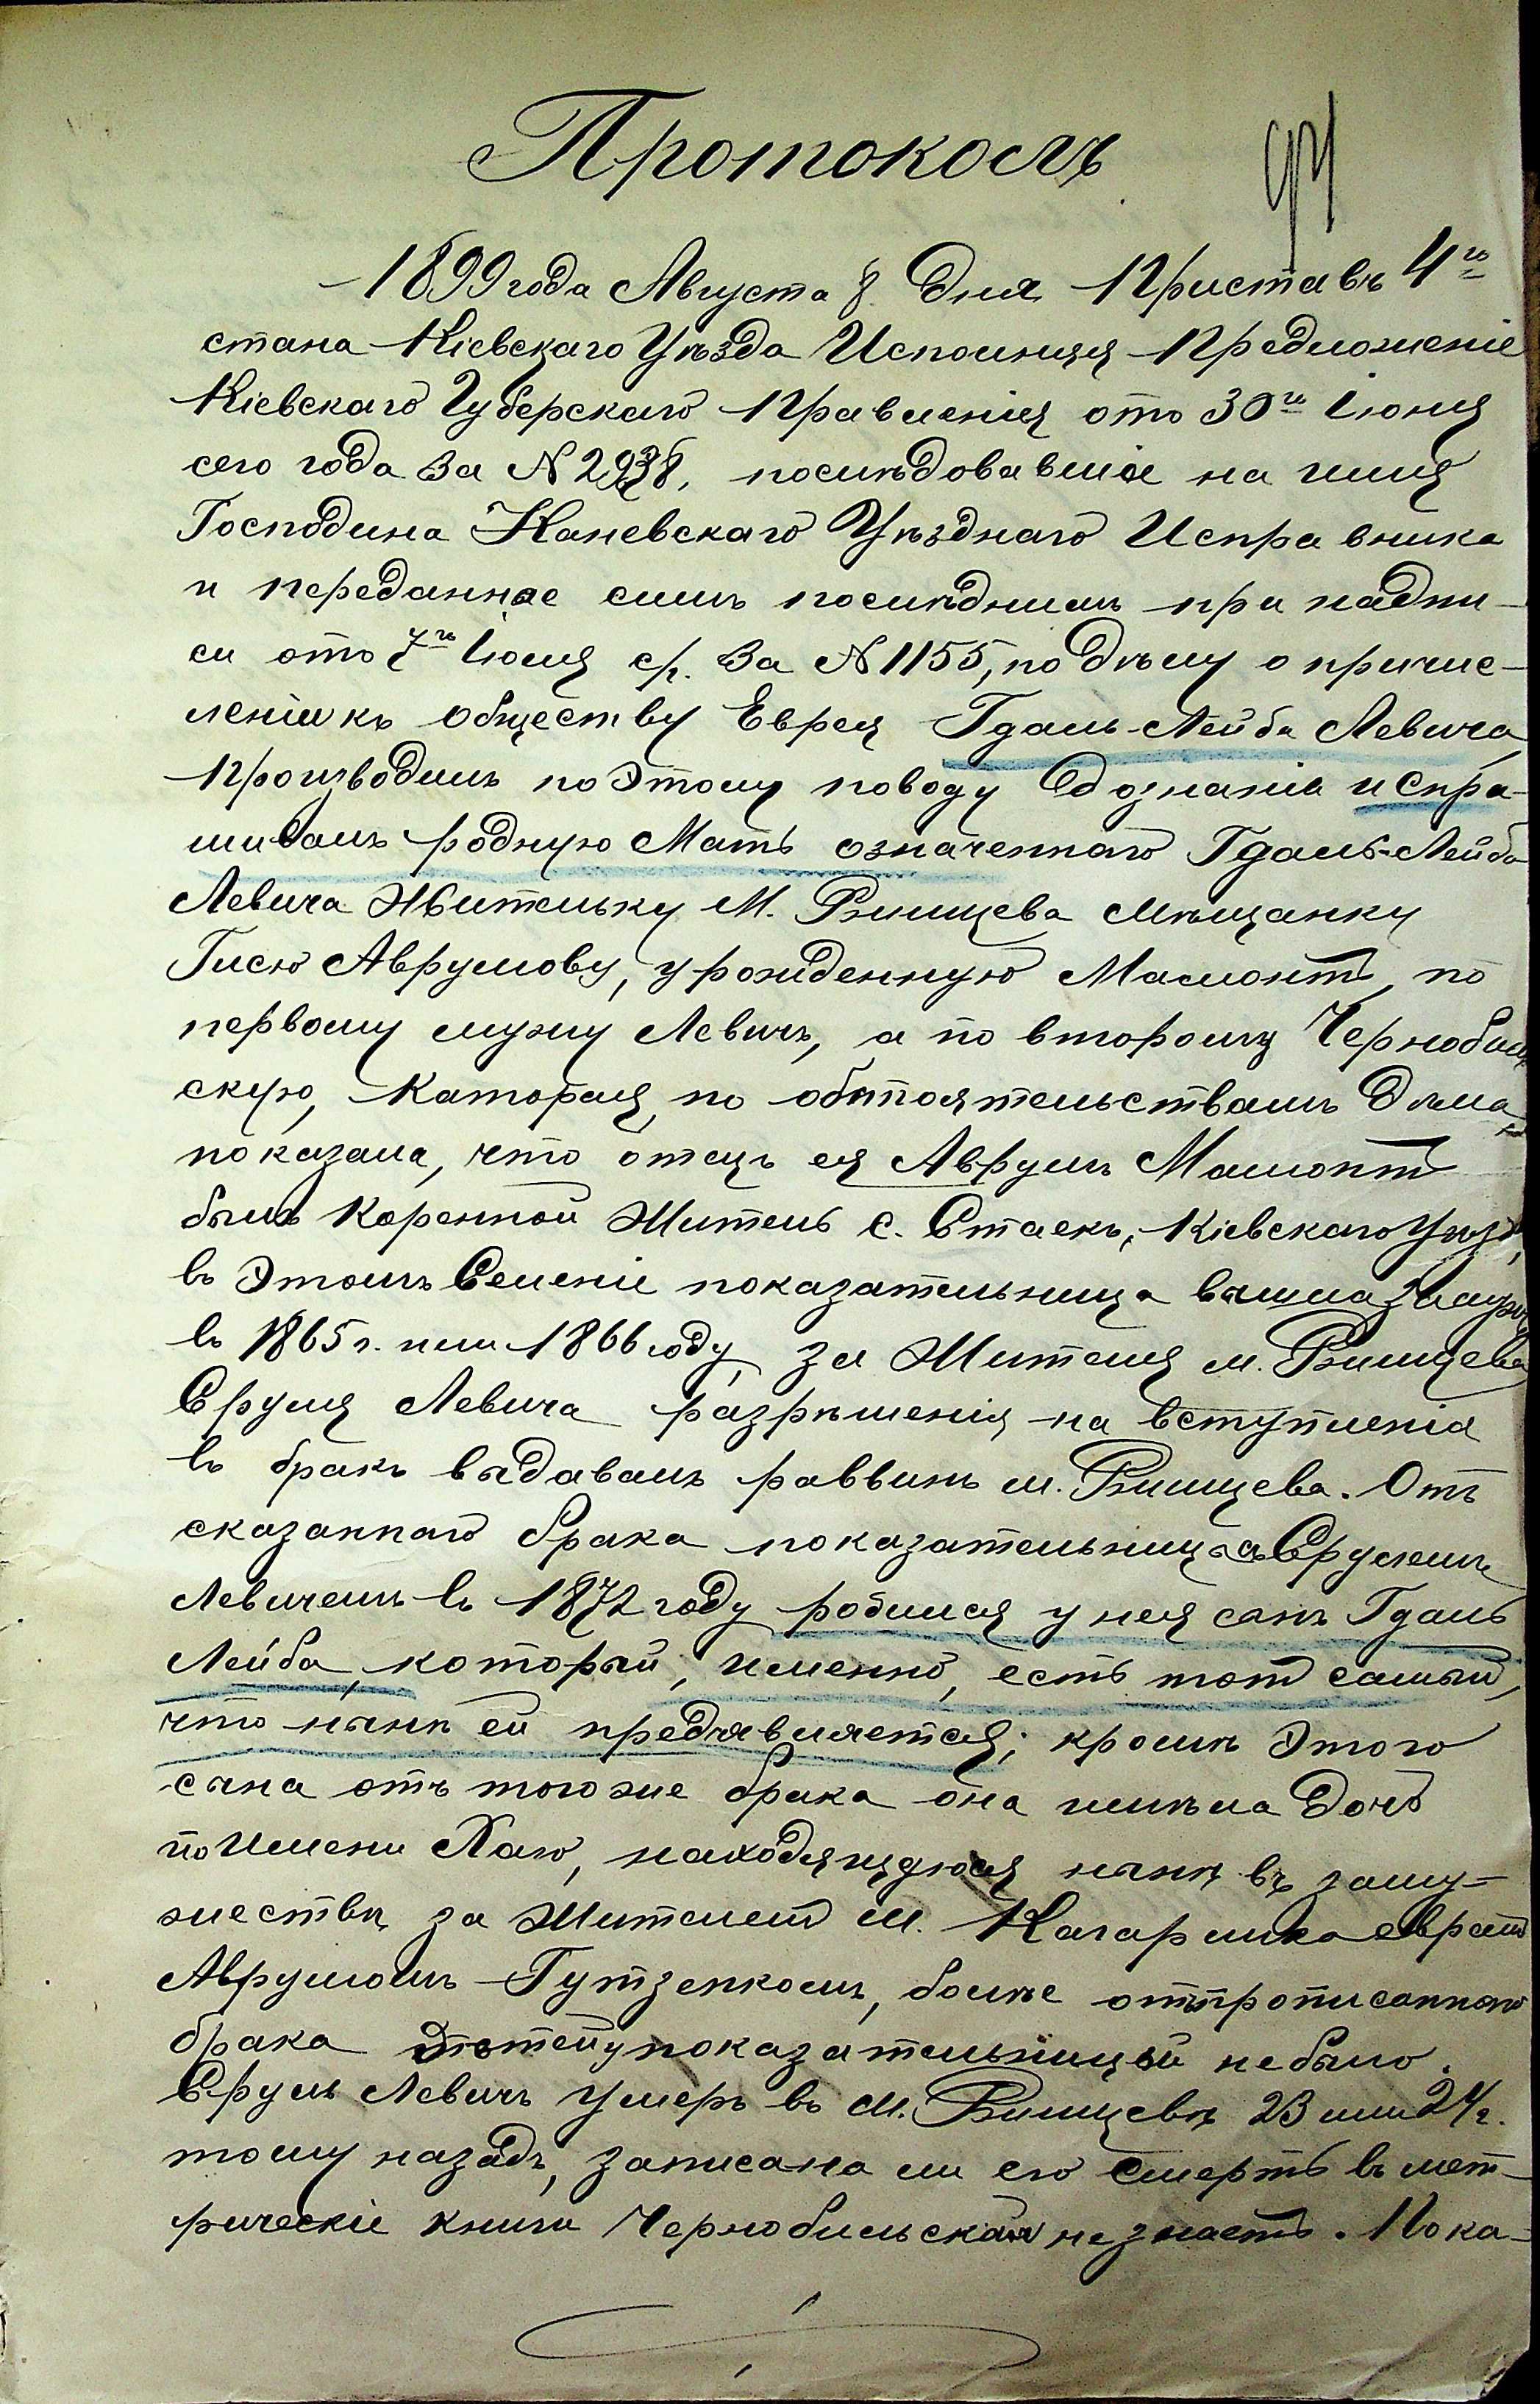 Протоколъ
94
1899 года Августа 8 дня Приставъ 4го
стана Кіевскаго Уѣзда Исполняя Предложеніе
Кіевскаго Губерскаго Правленія отъ 30го Іюня
сего года за N 2938, послѣдовавшіе на имя
Господина Каневскаго Уѣзднаго Исправника
и переданное симъ послѣднимъ при надпи-
си отъ 7го Іюля с/г. за N 1155, по дѣлу о причис-
леніи къ обществу Еврея Гдаль-Лейба Левича
Производилъ по Этому поводу дознаніе и спра-
шивалъ родную Мать означеннаго Гдаль-Лейба
Левича Жительку М. Ржищева мѣщанку
Гисю Аврумову, урожденную Мамонтъ, по
первому мужу Левичъ, а по второму Чернобыль
скую, Каторая, по обстоятельствамъ дѣла
показала, что отецъ ея Аврумъ Мамонтъ
былъ Коренной Житель с. Стаекъ, Кіевскаго Уѣзда,
въ Этомъ Селеніе показательница вышла замужъ
въ 1865 г. или 1866 году, за Жителя м. Ржищева
Сруля Левича разрѣшенія на вступленіе
въ бракъ выдавалъ раввинъ м. Ржищева. Отъ
сказаннаго брака показательницы съ Срулемъ
Левичемъ въ 1872 году родился у нея сынъ Гдаль
Лейба, который, именно, есть тотъ самый,
что нынѣ ей предъявляется; кромѣ Этого
сына отъ того же брака она имѣла дочь
по Имени Хаю, находящуюся нынѣ въ заму-
жествѣ за Жителемъ м. Кагарлика евреемъ
Аврумомъ Гутзенкомъ, болѣе отъ прописаннаго
брака дѣтей у показательницы не было.
Сруль Левичъ умеръ въ м. Ржищевѣ 23 или 24 г.
тому назадъ, записана ли его смерть въ мет-
рическіе книги Чернобильская не знаетъ. Пока-